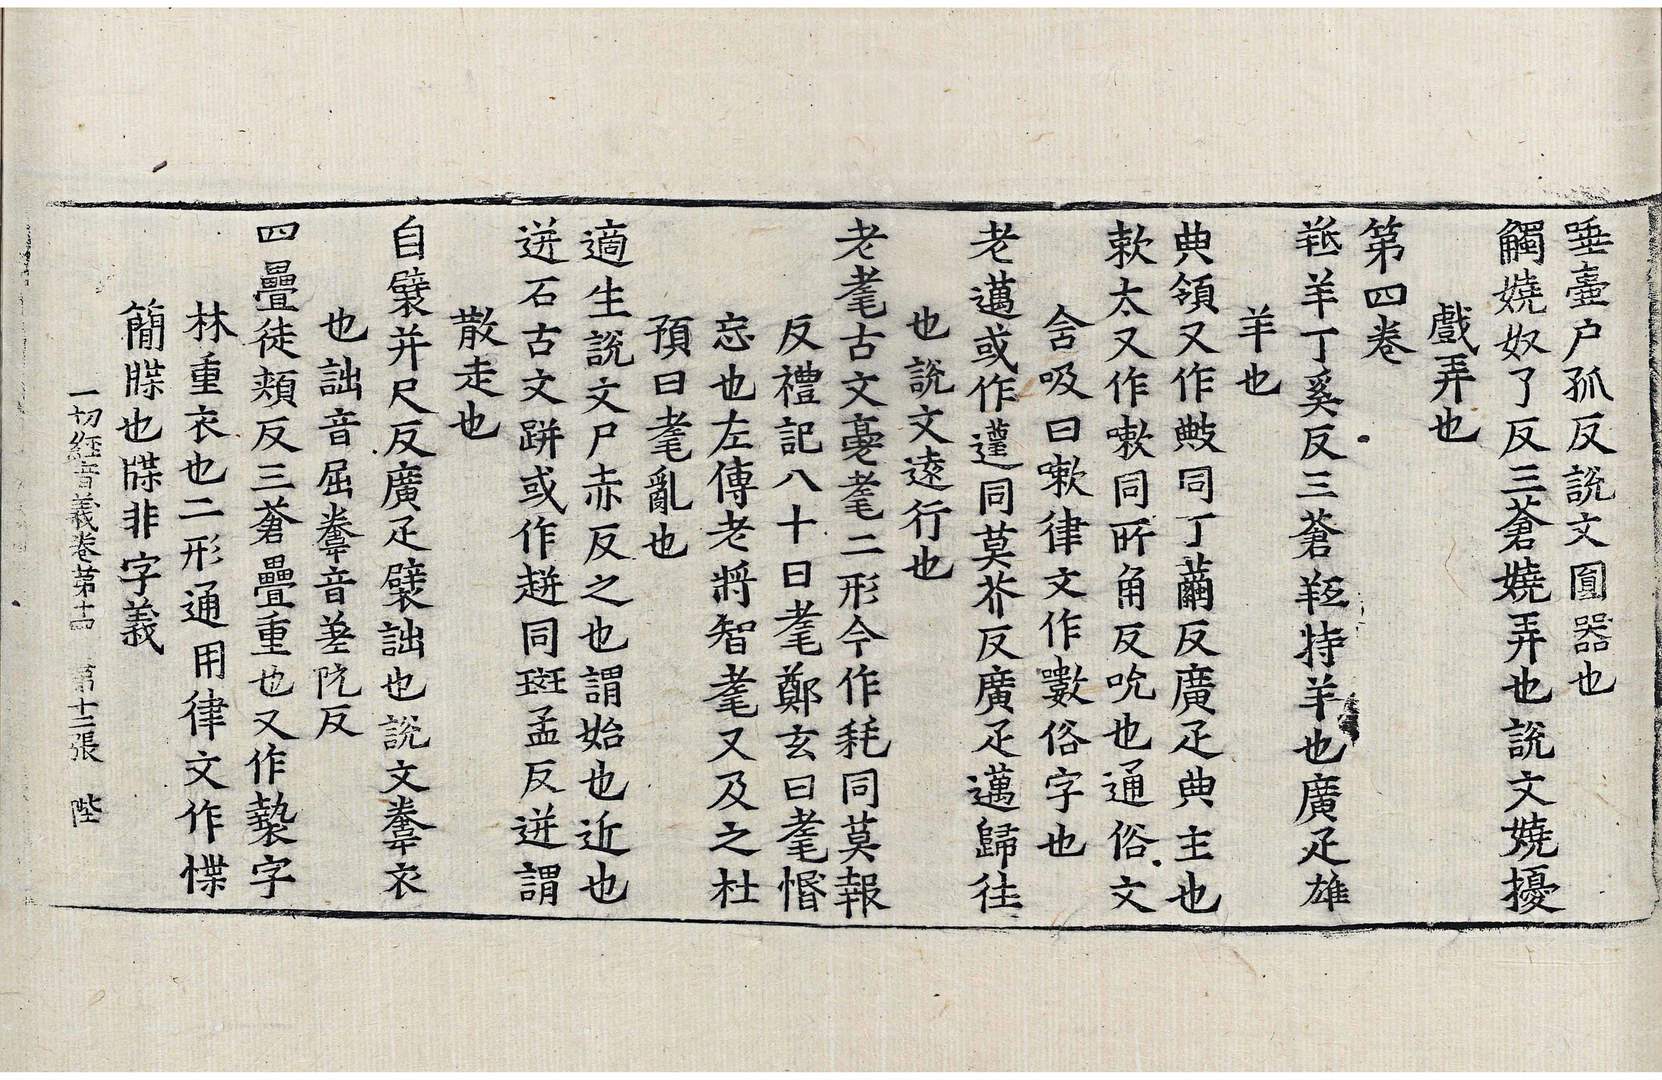 唾壺户孤反說文圎器也
觸嬈奴了反三蒼嬈弄也說文嬈擾
戲弄也
第四卷
羝羊丁奚反三蒼羝特羊也廣疋雄
羊也
典領又作敟同丁繭反廣疋典主也
欶太又作嗽同所角反吮也通俗文
含吸曰嗽律文作嗽俗字也
老邁或作䢕同莫芥反廣疋邁歸往
也說文遠行也
老耄古文耄二形今作耗同莫報
反禮記八十曰耄鄭玄曰耄惛
忘也左傳老將智耄又及之杜
預曰耄亂也
適生說文尸赤反之也謂始也近也
迸石古文跰或作趀同斑孟反迸謂
散走也
自襞并尺反廣疋襞詘也說文韏衣
也詘音屈韏音羌阮反
四疊徒頰反三蒼疊重也又作褺字
林重衣也二形通用律文作惵
簡牒也牒非字義
一切經音義卷第十四 第十二張 陛